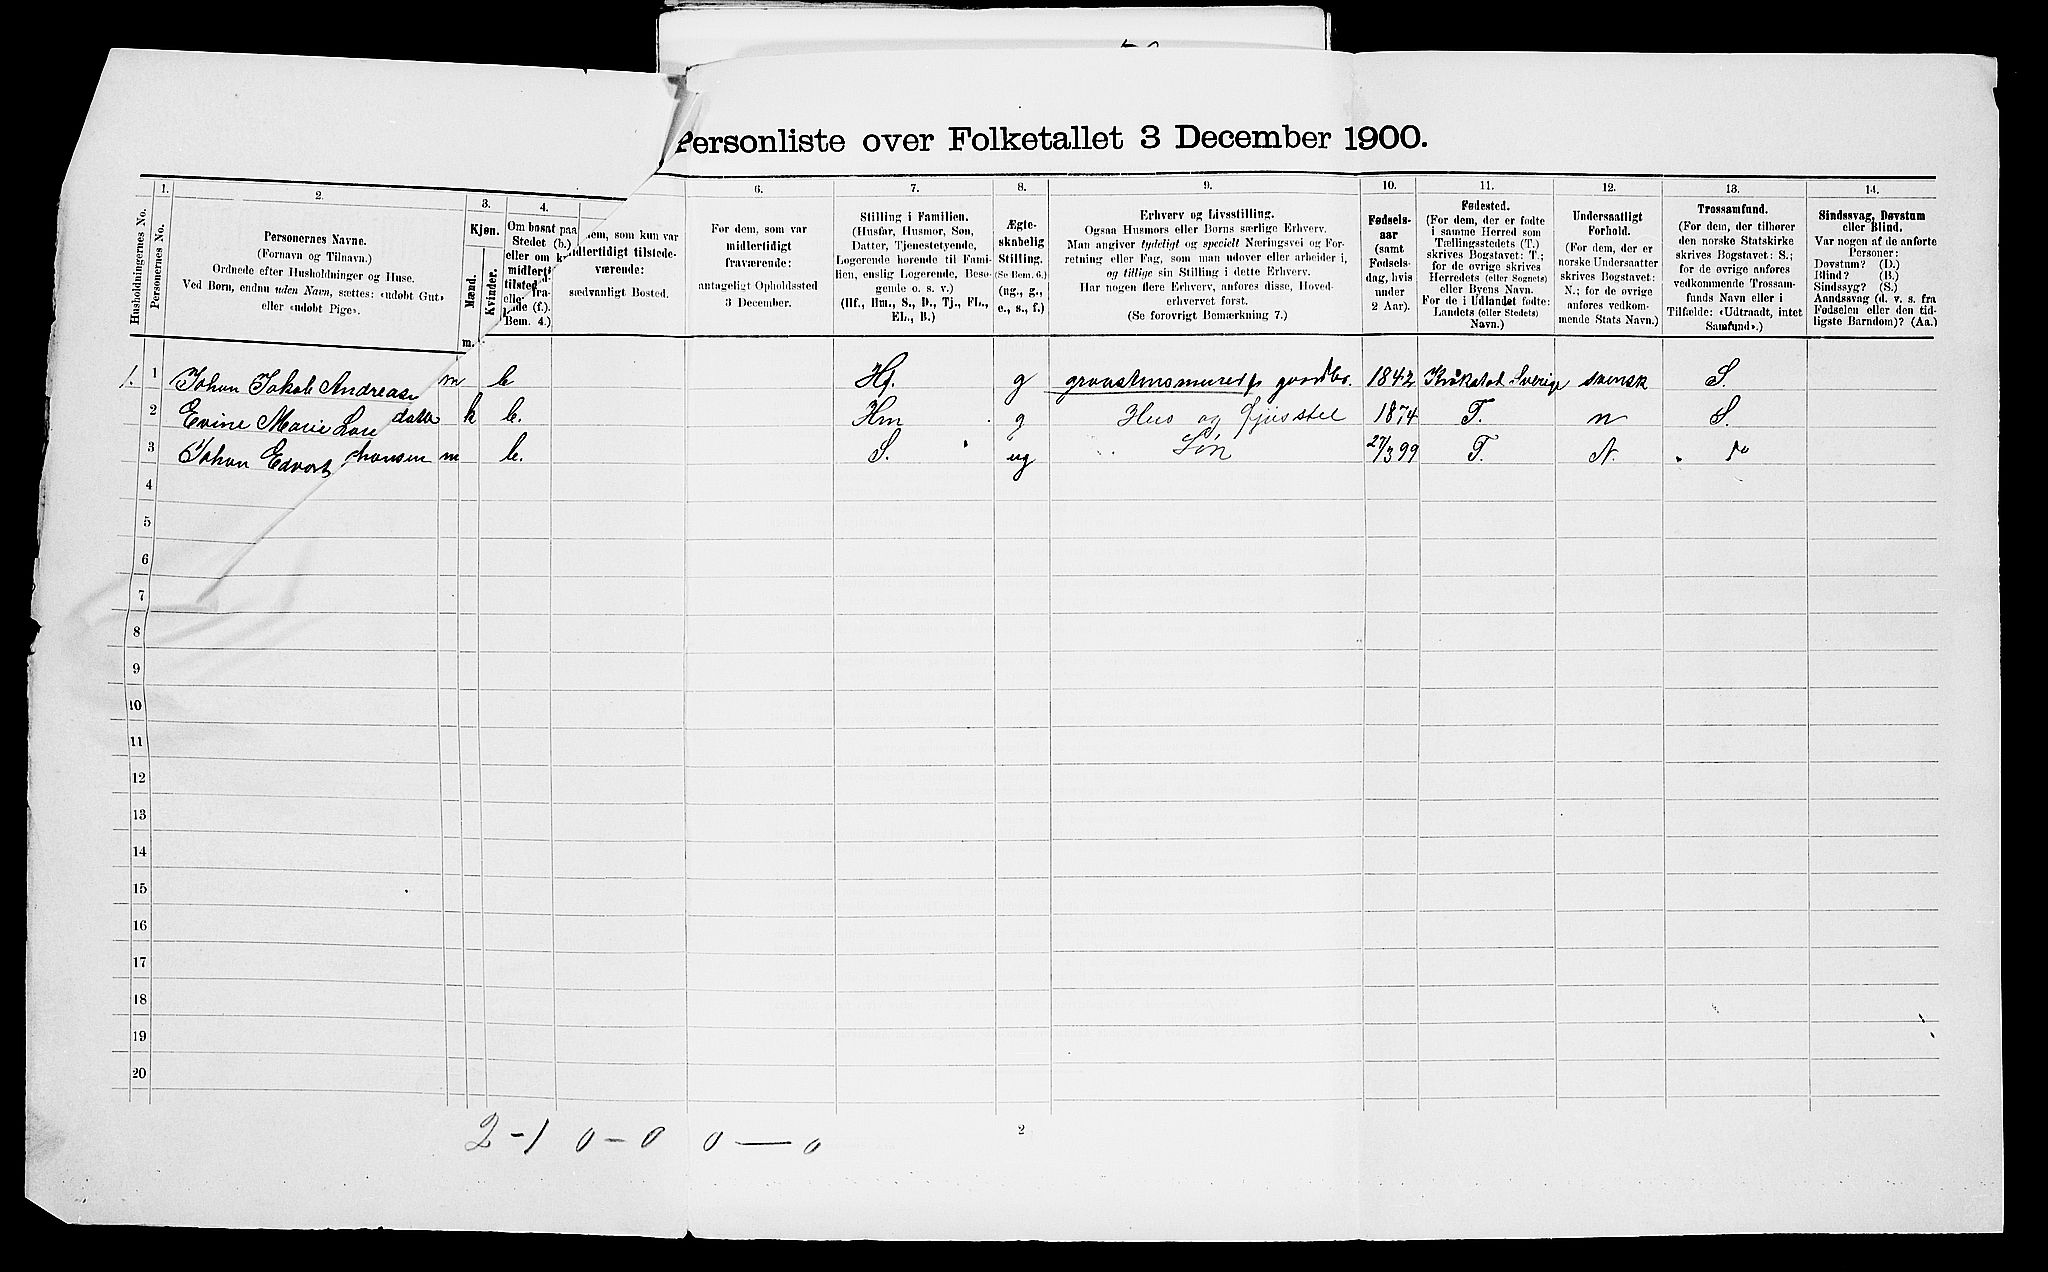 Personliste over Folketallet 3 December 1900.
1. 2. 3. 4. 6. 7. 8. 9. 10. 11. 12. 13. 14.
Husholdningernes No.
Personernes No.
Personernes Navne.
(Fornavn og Tilnavn.)
Ordnede efter Husholdninger og Huse.
Ved Børn, endnu uden Navn, sættes: «udøbt Gut»
eller «udøbt Pige».
Kjøn.
Mænd.
Kvinder.
m.
Om bosat paa
Stedet (b.)
eller om
midlerti
tilsted
elle
Bem. 4.)
dem, som kun var
midlertidigt tilstede-
værende:
sædvanligt Bosted.
For dem, som var
midlertidigt
fraværende:
antageligt Opholdssted
3 December.
Stilling i Familien.
(Husfar, Husmor, Søn,
Datter, Tjenestetyende,
Logerende hørende til Fami-
lien, enslig Logerende, Besø-
gende o. s. v.)
(Hf., Hm., S., D., Tj., FL.,
EL., B.)
Ægte-
skabelig
Stilling.
(Se Bem. 6.)
(ug., g.,
e., s., f.)
Erhverv og Livsstilling.
Ogsaa Husmors eller Børns særlige Erhverv.
Man angiver tydeligt og specielt Næringsvei og For-
retning eller Fag, som man udøver eller arbeider i,
og tillige sin Stilling i dette Erhverv.
Har nogen flere Erhverv, anføres disse, Hoved-
erhvervet først.
(Se forøvrigt Bemærkning 7.)
Fødsels-
aar
(samt
Fødsels-
dag, hvis
under
2 Aar).
Fødested.
(For dem, der er fødte
i samme Herred som
Tællingsstedets (T.)
skrives Bogstavet: T.;
for de øvrige skrives
Herredets (eller Sognets)
eller Byens Navn.
For de i Udlandet fødte:
Landets (eller Stedets)
Navn.)
Undersaatligt
Forhold.
(For dem, der er
norske Undersaatter
skrives Bogstavet:
N.; for de øvrige
anføres vedkom-
mende Stats Navn.)
Trossamfund.
(For dem, der tilhører
den norske Statskirke
skrives Bogstavet: S.;
for de øvrige anføres
vedkommende Trossam-
funds Navn eller i
Tilfælde: «Udtraadt, intet
Samfund».)
Sindssvag, Døvstum
eller Blind.
Var nogen af de anførte
Personer:
Døvstum? (D.)
Blind? (B.)
Sindssyg? (S.)
Aandssvag (d. v. s. fra
Fødselen eller den tid-
ligste Barndom)? (Aa.)
1. 1 Johan Jakob Andreas m b Hf. g graastensmurer gaardbr. 1842 Sverige svensk S.
2 Evine Marie Lare datter k b. Hm g Hus og fjøsstel 1874 T. n S.
3 Johan Edvart hansen m b. S. ug Søn 27/3 99 T. N. do
4
5
6
7
8
9
10
11
12
13
14
15
16
17
18
19
20
2-1 0-0 0-0
2